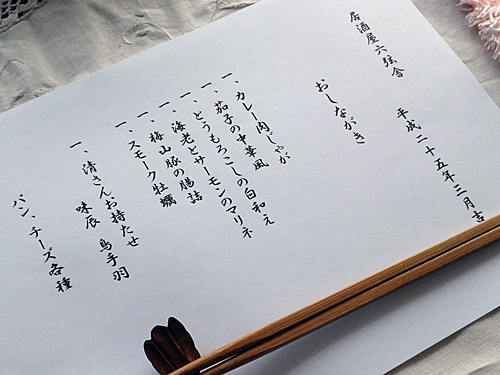 居酒屋六弦舎
平成二十五年三月吉
おしながき
一、カレー肉じゃが
一、茄子の中華風
一、とうもろこしの白和え
一、海老とサーモンのマリネ
一、梅山豚の腸詰
一、スモーク牡蠣
一、清さんお持たせ
味辰 鳥手羽
パン、チーズ各種